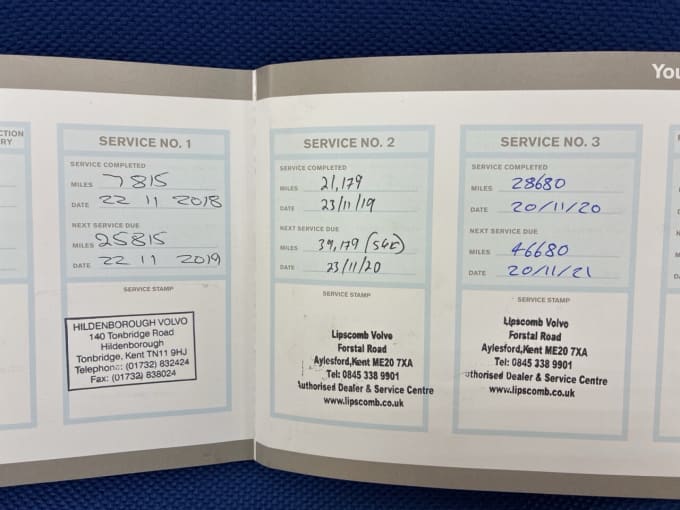 You
CTION
RY
SERVICE NO. 1
SERVICE COMPLETED
MILES 7815
DATE 22 11 2018
NEXT SERVICE DUE
MILES 25815
DATE 22 11 2019
SERVICE STAMP
HILDENBOROUGH VOLVO
140 Tonbridge Road
Hildenborough
Tonbridge, Kent TN11 9HJ
Telephone: (01732) 832424
Fax: (01732) 838024
SERVICE NO. 2
SERVICE COMPLETED
MILES 21,179
DATE 23/11/19
NEXT SERVICE DUE
MILES 39,179 (SGE)
DATE 23/11/20
SERVICE STAMP
Lipscomb Volvo
Forstal Road
Aylesford,Kent ME20 7XA
Tel: 0845 338 9901
uthorised Dealer & Service Centre
www.lipscomb.co.uk
SERVICE NO. 3
SERVICE COMPLETED
MILES 28680
DATE 20/11/20
NEXT SERVICE DUE
MILES 46680
DATE 20/11/21
SERVICE STAMP
Lipscomb Volvo
Forstal Road
Aylesford,Kent ME20 7XA
Tel: 0845 338 9901
uthorised Dealer & Service Centre
www.lipscomb.co.uk